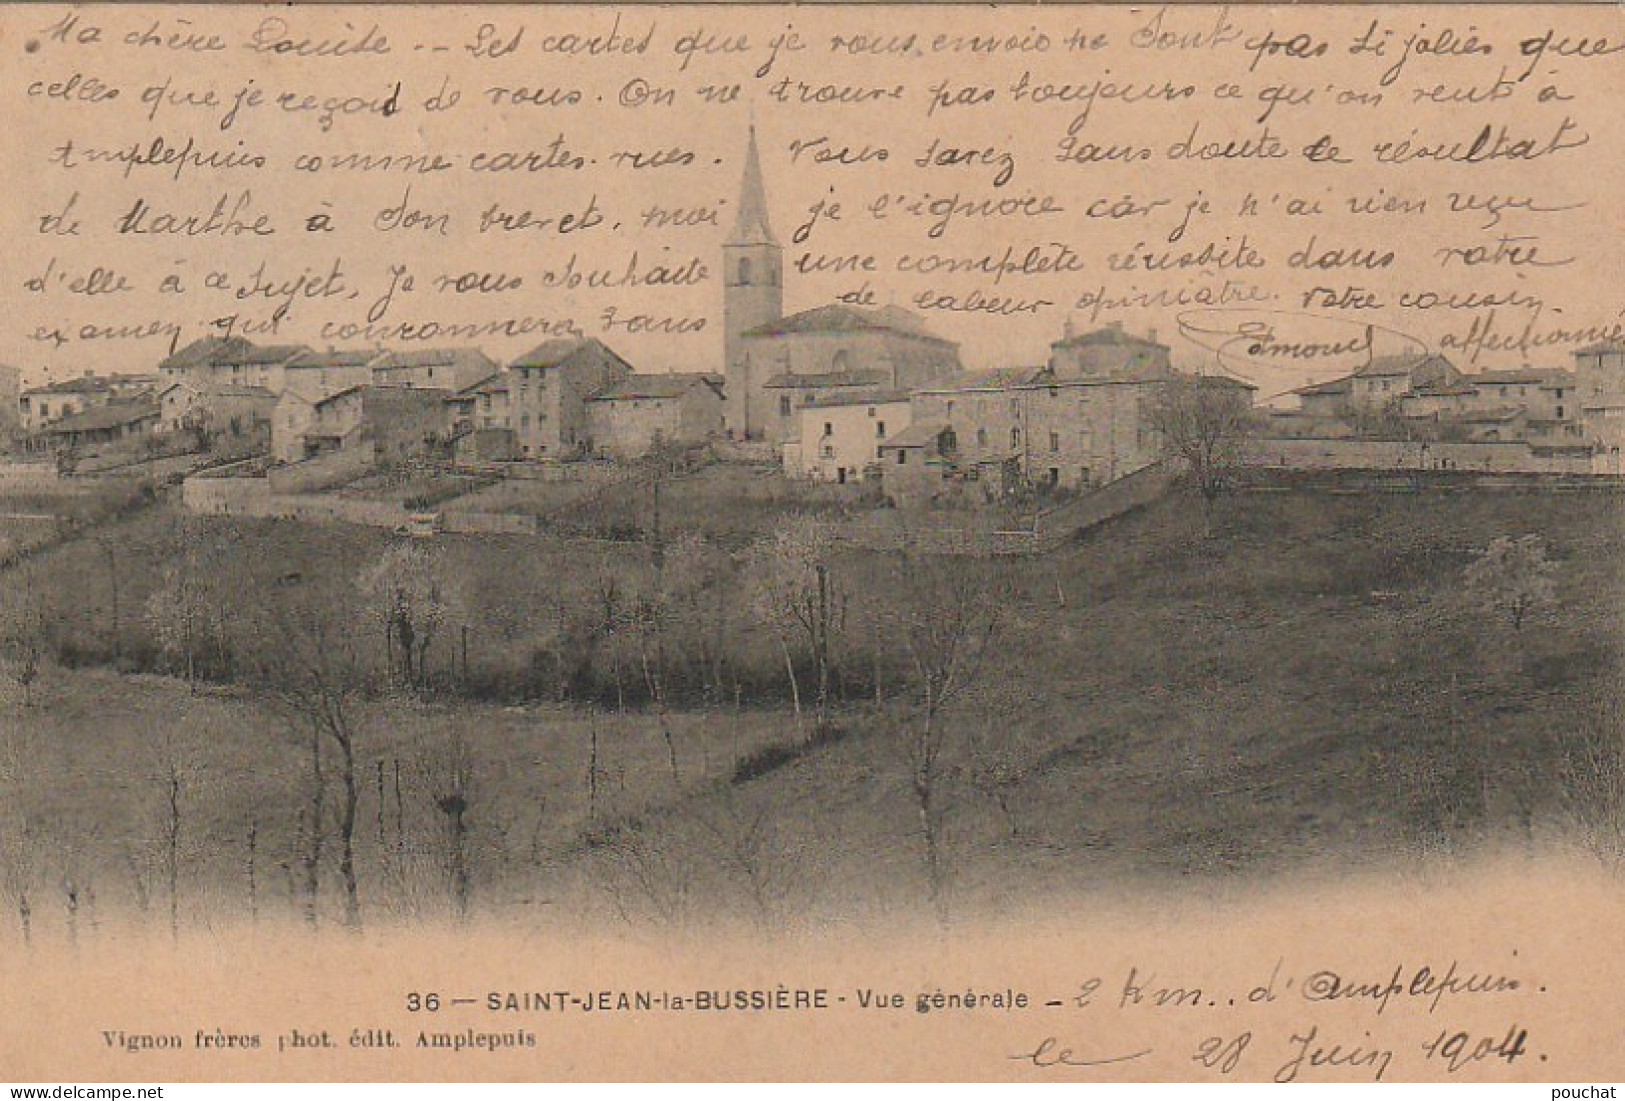 Ma chère Louise -- Les cartes que je vous envoie ne sont pas si jolies que
celles que je reçois de vous. On ne trouve pas toujours ce qu'on veut à
Amplepuis comme cartes-vues. Vous savez sans doute le résultat
de Marthe à son brevet, moi je l'ignore car je n'ai rien reçu
d'elle à ce sujet, Je vous souhaite une complète réussite dans votre
examen qui couronnera sans de labeur opiniâtre. Votre cousin
affectionné
Edmond
36 — SAINT-JEAN-la-BUSSIÈRE - Vue générale - 2 Km.. d'Amplepuis.
Vignon frères phot. édit. Amplepuis
le 28 Juin 1904.
pouchat